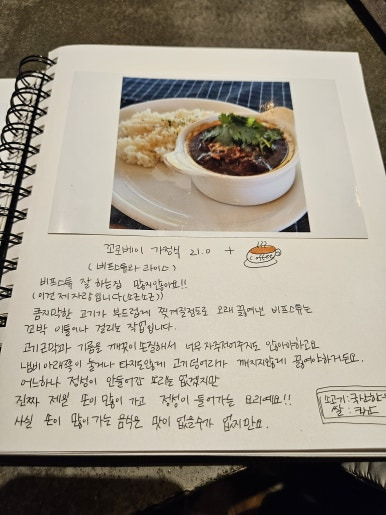 꼬꼬베이 가정식 21.0 +
coffee
(비프스튜와 라이스)
비프스튜 잘 하는집 많지않아요!!
(이건 제자랑 입니다(소근소근))
큼지막한 고기가 부드럽게 찢겨질정도로 오래 끓여낸 비프스튜는
꼬박 이틀이나 걸리는 작업입니다.
고기근막과 기름을 깨끗이손질해서 너무 자주저어주지도 않아야하고요
냄비 아래쪽이 눌거나 타지도않게 고기덩어리가 깨지지않게 끓여야하거든요.
어느하나 정성이 안들어간 요리는 없겠지만
진짜 제일 손이많이 가고 정성이 들어가는 요리예요!!
사실 손이 많이가는 음식은 맛이 없을수가 없지만요.
소고기:국산한우
쌀: